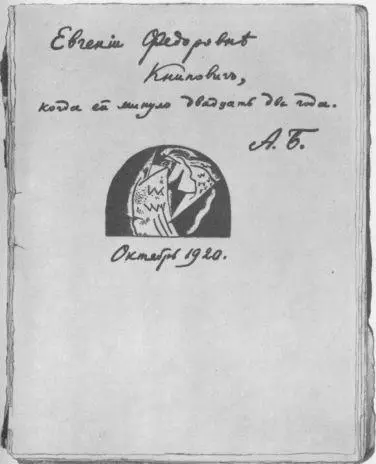 Евгеніи Федоровнѣ
Книповичъ,
когда ей минуло двадцать два года.
А. Б.
Октябрь 1920.